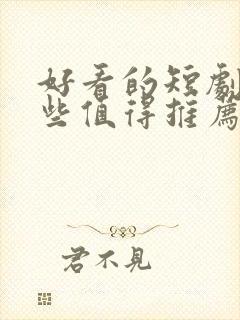 好看的短劇
些值得推薦
君不見